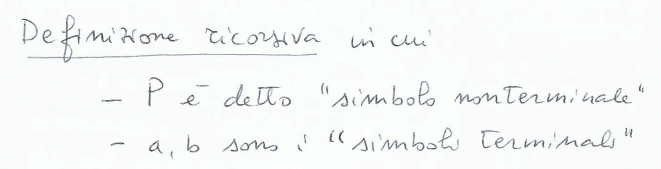 Definizione ricorsiva in cui
- P è detto "simbolo nonterminale"
- a, b sono i "simboli terminali"